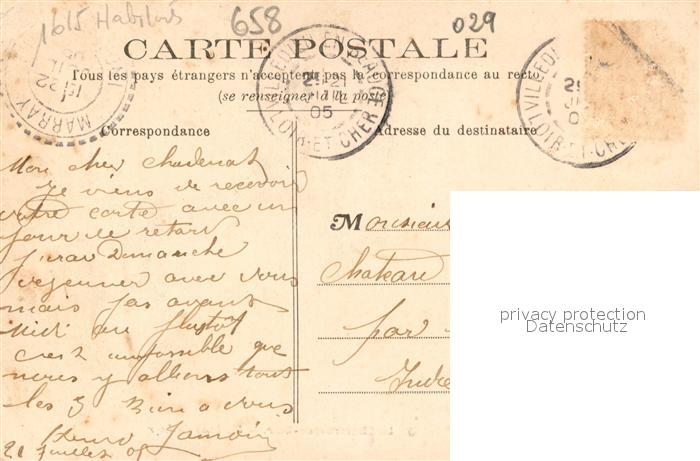 1615 Habitants
658
029
CARTE POSTALE
Tous les pays étrangers n'acceptent pas la correspondance au recto
(se renseigner à la poste)
Correspondance
Adresse du destinataire
MARRAY
LOIR-ET-CHER
05
VILLEDI
LOIR-ET-CHE
Mon cher
Je viens de recevoir
votre carte avec un
jour de retard
j'irai Dimanche
dejeuner avec vous
mais pas avant
Midi au plustot
C'est impossible que
nous y allions tout
les 3 Bien a vous
21 Juillet 05
Monsieur
Chateau
par
Indre
privacy protection
Datenschutz